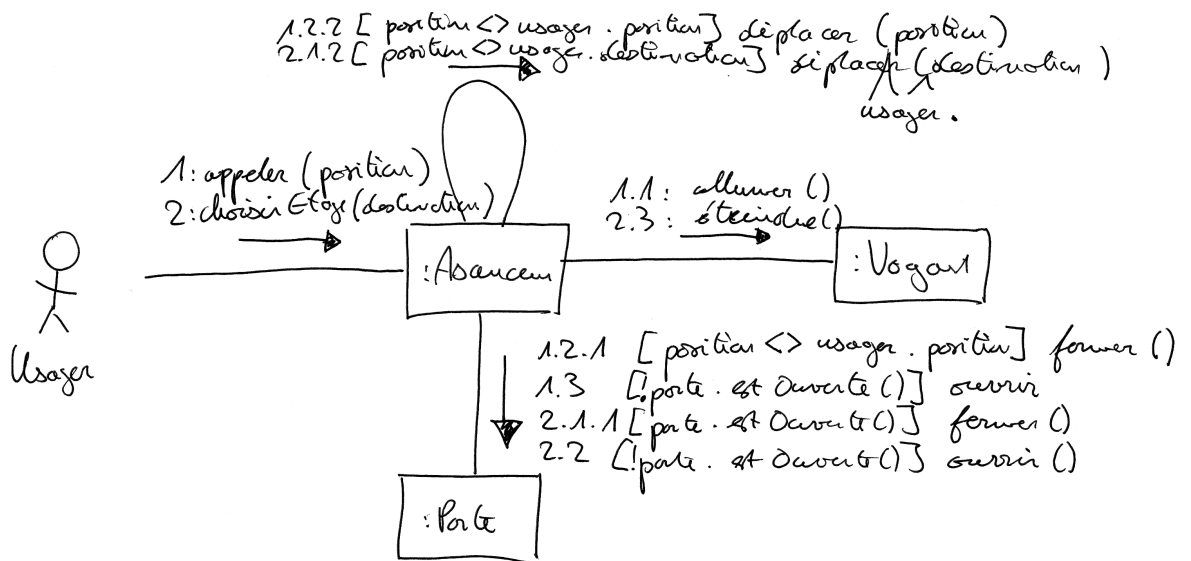 1.2.2 [ position <> usager . position] déplacer (position)
2.1.2 [ position <> usager.destination] déplacer (destination )
usager .
1: appeler (position)
2: choisir Etage (destination)
1.1 : allumer ()
2.3 : éteindre()
:Ascenceur
: Voyant
Usager
1.2.1 [ position <> usager . position] fermer ()
1.3 [!porte . est Ouverte ()] ouvrir
2.1.1 [ porte . est Ouverte ()] fermer ()
2.2 [!porte . est Ouverte()] ouvrir ()
: Porte